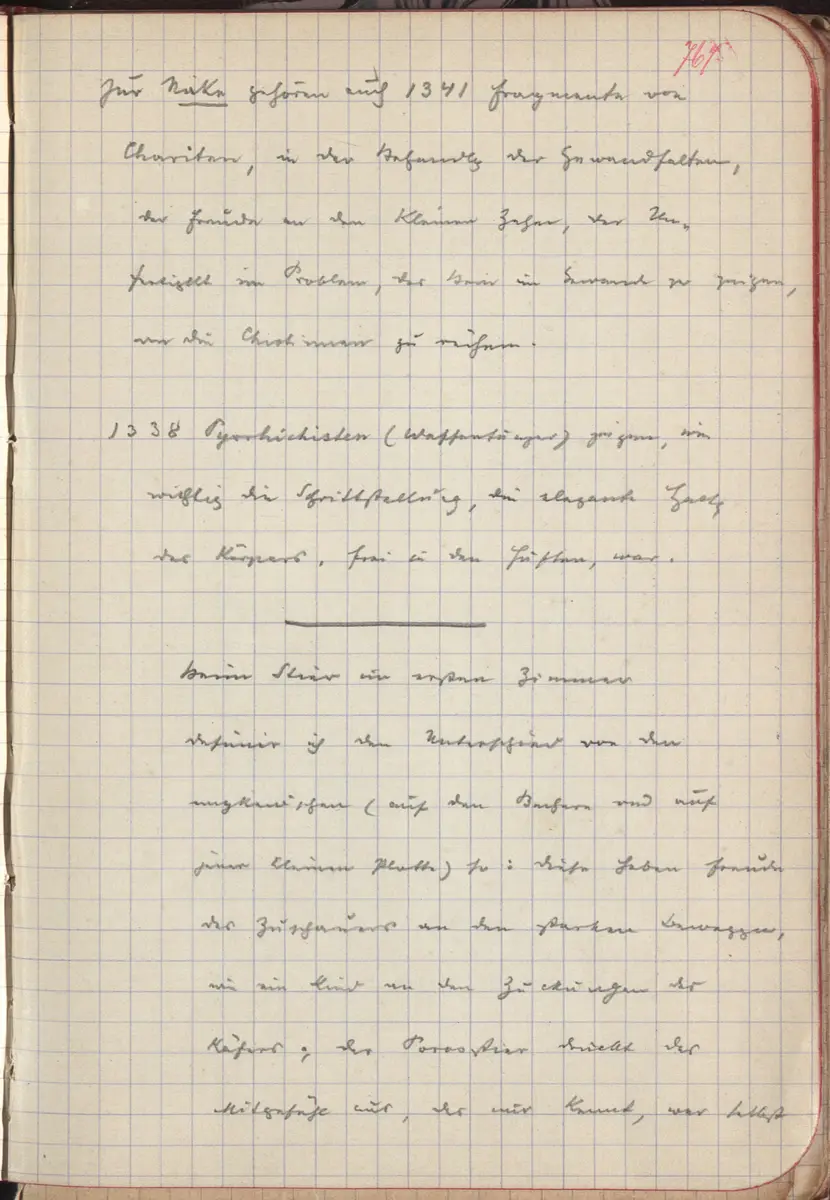 769
Zur Nike gehören auch 1341 Fragmente von
Chariten, in der Behandlg der Gewandfalten,
der Freude an den kleinen Zehen, der Un-
fertigkt im Problem, das Bein im Gewande zu zeigen,
an die Chiotinnen zu reihen.
1338 Pyrrhichisten (Waffentänzer) zeigen, wie
wichtig die Schrittstellung, die elegante Haltg
des Körpers, frei in den Hüften, war.
Beim Stier im ersten Zimmer
definir ich den Unterschied von den
mykenischen (auf den Bechern und auf
jener kleinen Platte) so: diese haben Freude
des Zuschauers an den starken Beweggen,
wie ein Kind an den Zuckungen des
Käfers; der Porosstier drückt das
Mitgefühl aus, das nur kennt, wer selbst